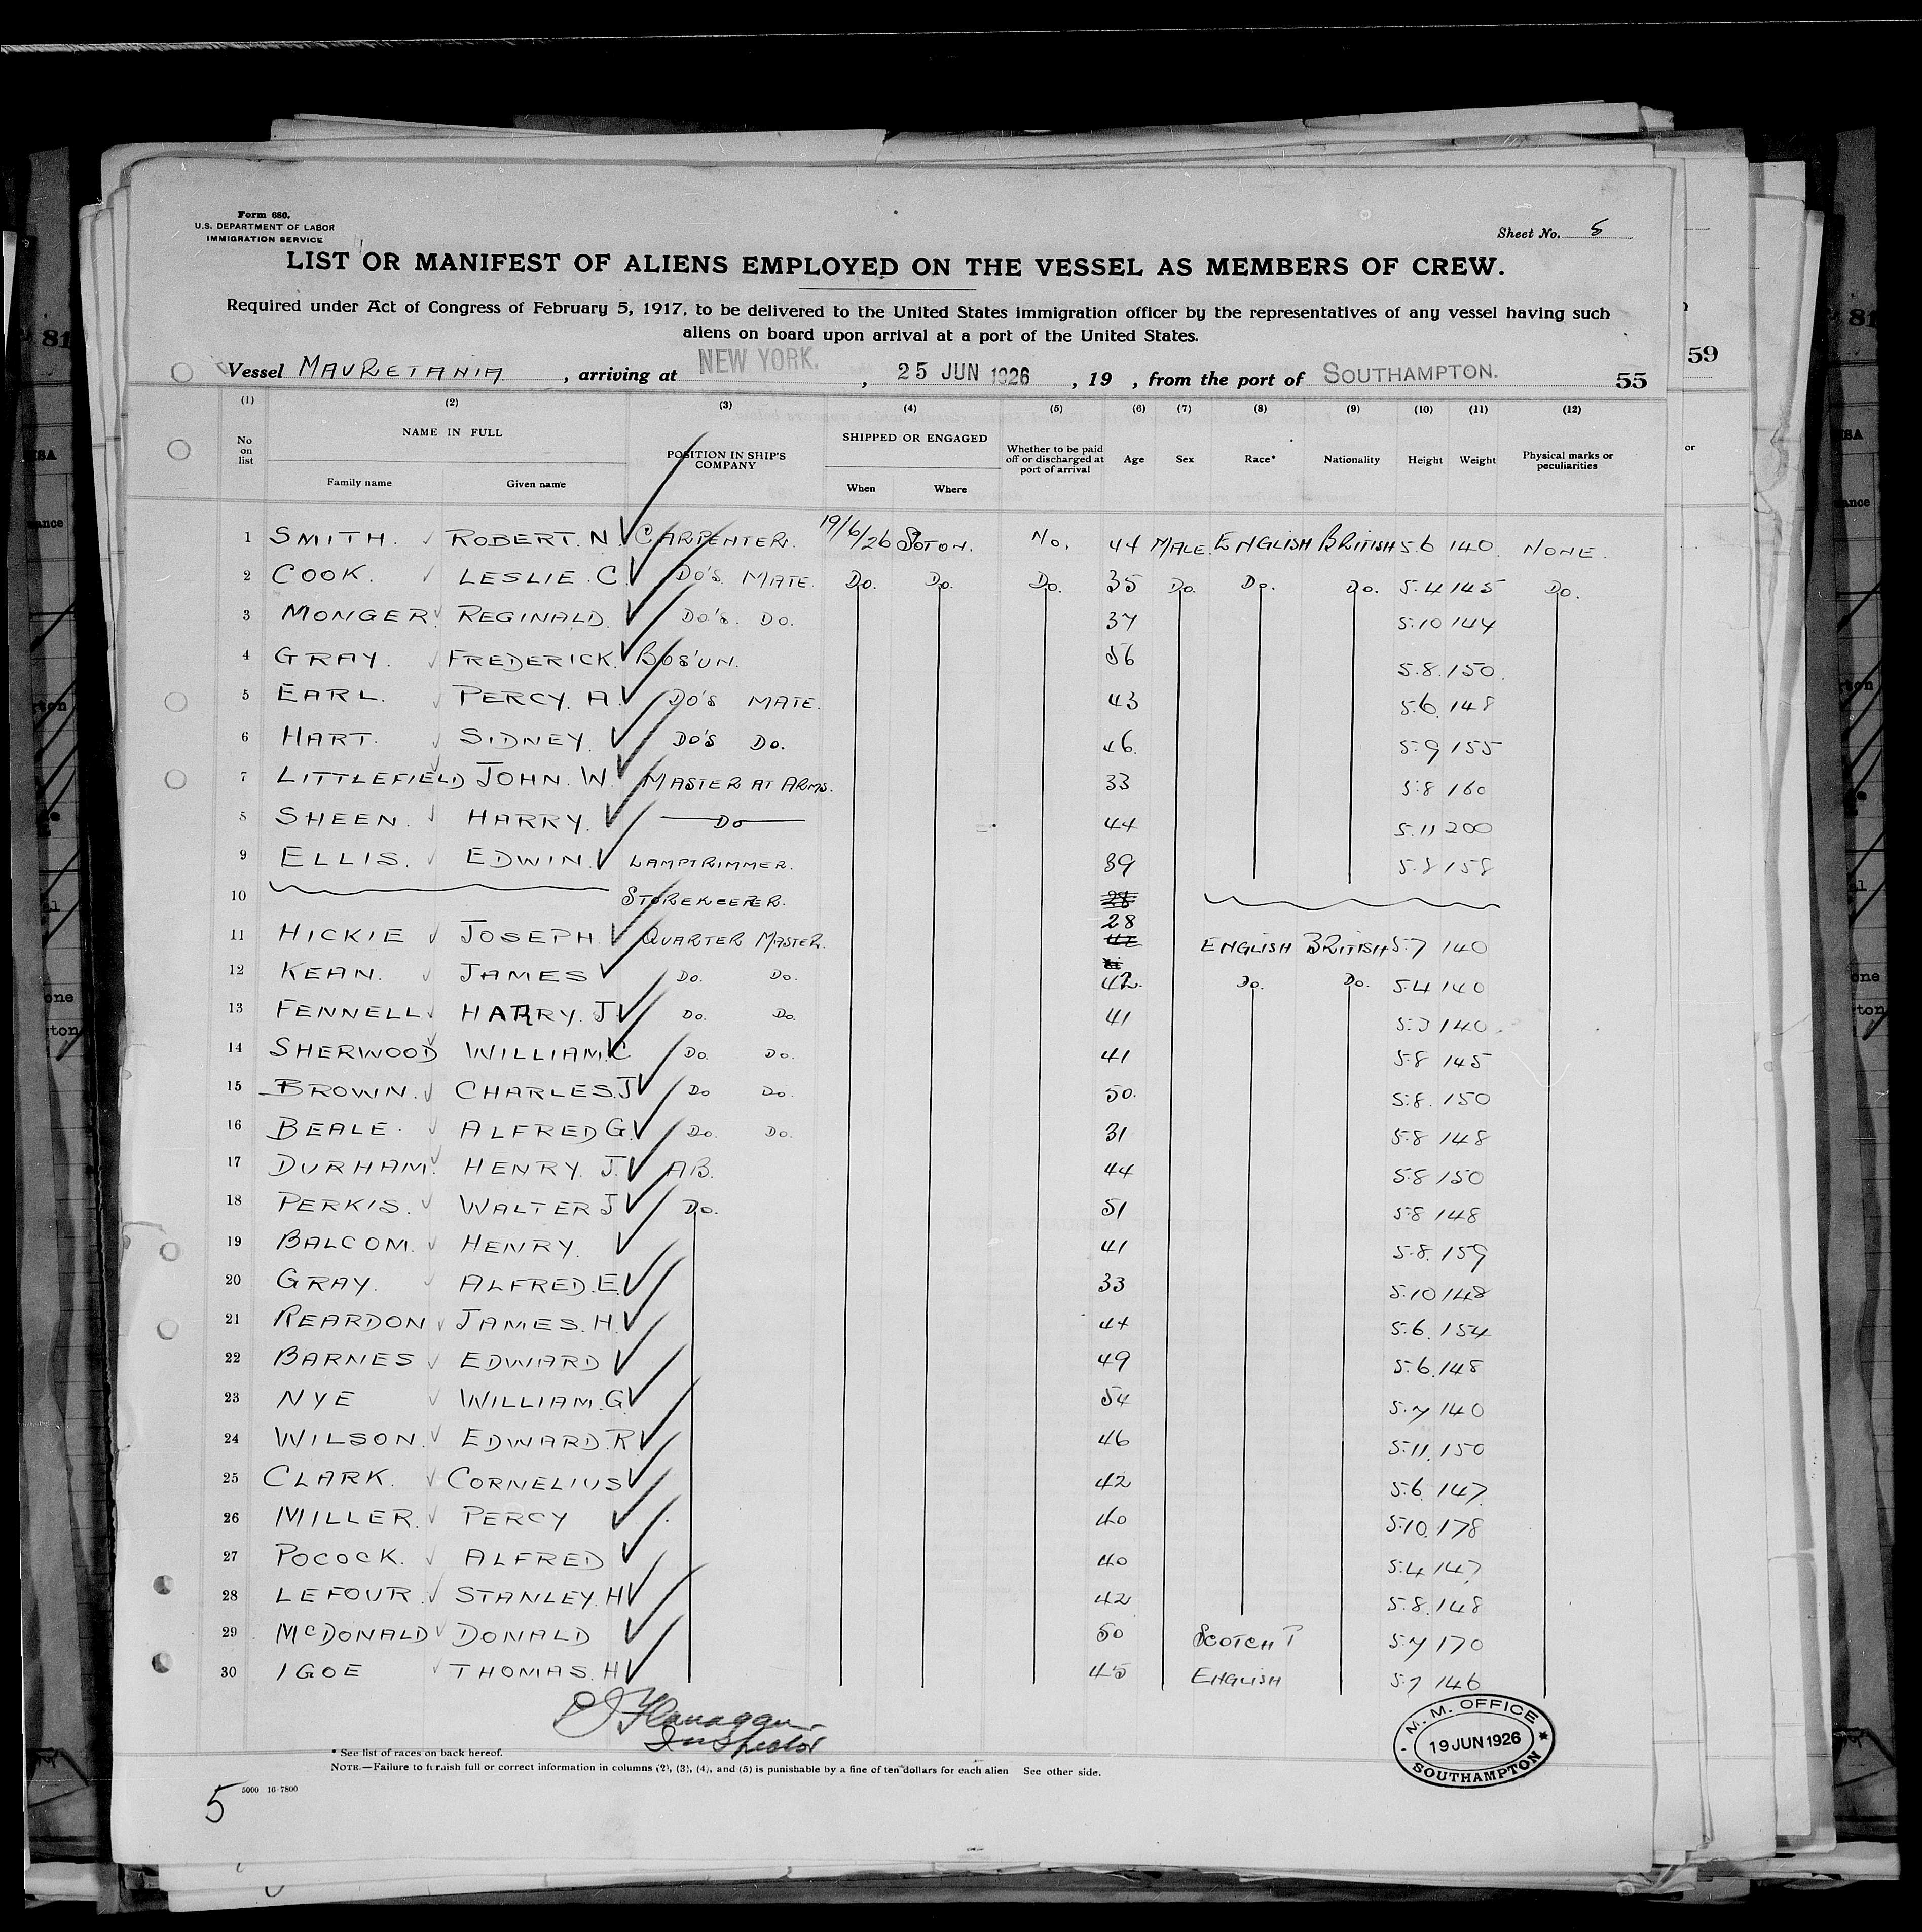 Form 680.
U.S. DEPARTMENT OF LABOR
IMMIGRATION SERVICE
Sheet No. 5
LIST OR MANIFEST OF ALIENS EMPLOYED ON THE VESSEL AS MEMBERS OF CREW.
Required under Act of Congress of February 5, 1917, to be delivered to the United States immigration officer by the representatives of any vessel having such
aliens on board upon arrival at a port of the United States.
Vessel MAURETANIA, arriving at NEW YORK., 25 JUN 1926, 19 , from the port of SOUTHAMPTON. 55
59
(1) (2) (3) (4) (5) (6) (7) (8) (9) (10) (11) (12)
No on list NAME IN FULL Family name Given name POSITION IN SHIP'S COMPANY SHIPPED OR ENGAGED When Where Whether to be paid off or discharged at port of arrival Age Sex Race* Nationality Height Weight Physical marks or peculiarities
1 SMITH. ROBERT. N. CARPENTER. 19/6/26 S'OTON. No. 44 MALE. ENGLISH BRITISH 5.6 140. NONE.
2 COOK. LESLIE. C. DO'S. MATE. Do. Do. Do. 35 Do. Do. Do. 5.4 145 Do.
3 MONGER. REGINALD. DO'S. DO. 37 5.10 144
4 GRAY. FREDERICK. BOS'UN. 56 5.8. 150.
5 EARL. PERCY. A. DO'S MATE. 43 5.6. 148
6 HART. SIDNEY. DO'S DO. 46. 5.9 155
7 LITTLEFIELD JOHN. W. MASTER AT ARMS. 33 5.8 160
8 SHEEN. HARRY. DO 44 5.11 200
9 ELLIS. EDWIN. LAMPTRIMMER. 39 5.8 158
10 STOREKEEPER. 28
11 HICKIE JOSEPH. QUARTER MASTER. 28 42 ENGLISH BRITISH 5.7 140
12 KEAN. JAMES Do. Do. 42. Do. Do. 5.4 140
13 FENNELL HARRY. J. Do. Do. 41 140.
14 SHERWOOD WILLIAM. C Do. Do. 41 5.8 145
15 BROWN. CHARLES. J Do Do. 50. 5.8. 150
16 BEALE. ALFRED G. Do. Do. 31 5.8 148
17 DURHAM. HENRY. J. AB. 44 5.8 150
18 PERKIS. WALTER J Do. 51 5.8 148
19 BALCOM. HENRY. 41 5.8. 159
20 GRAY. ALFRED. E. 33 5.10 148
21 REARDON JAMES. H. 44 5.6. 154
22 BARNES EDWARD 49 5.6. 148
23 NYE WILLIAM. G. 54 5.7 140
24 WILSON. EDWARD. R. 46 5.11. 150
25 CLARK. CORNELIUS 42 5.6. 147.
26 MILLER. PERCY 40 5.10. 178
27 POCOCK. ALFRED 40 5.4 147
28 LEFOUR. STANLEY. H 42 5.8. 148
29 McDONALD DONALD 50 SCOTCH 5.7 170
30 IGOE THOMAS. H 45 ENGLISH 5.7 146
Flanagan
Inspector
M.M. OFFICE
19 JUN 1926
SOUTHAMPTON
* See list of races on back hereof.
NOTE.—Failure to furnish full or correct information in columns (2), (3), (4), and (5) is punishable by a fine of ten dollars for each alien See other side.
5000 16-7800
5